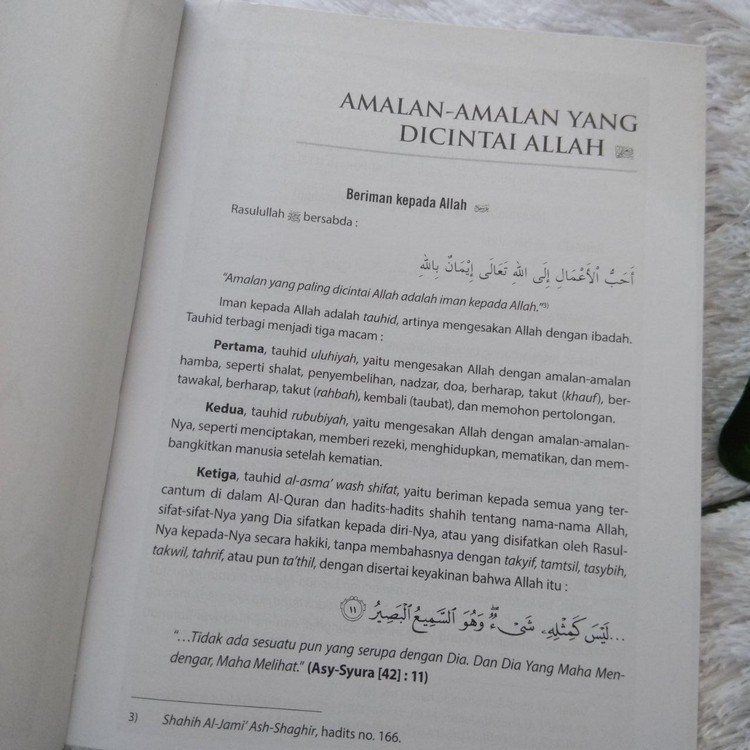 AMALAN-AMALAN YANG
DICINTAI ALLAH ﷻ
Beriman kepada Allah ﷻ
Rasulullah ﷺ bersabda :
أَحَبُّ الْأَعْمَالِ إِلَى اللهِ تَعَالَى إِيْمَانٌ بِاللهِ
"Amalan yang paling dicintai Allah adalah iman kepada Allah."3)
Iman kepada Allah adalah tauhid, artinya mengesakan Allah dengan ibadah.
Tauhid terbagi menjadi tiga macam :
Pertama, tauhid uluhiyah, yaitu mengesakan Allah dengan amalan-amalan
hamba, seperti shalat, penyembelihan, nadzar, doa, berharap, takut (khauf), ber-
tawakal, berharap, takut (rahbah), kembali (taubat), dan memohon pertolongan.
Kedua, tauhid rububiyah, yaitu mengesakan Allah dengan amalan-amalan-
Nya, seperti menciptakan, memberi rezeki, menghidupkan, mematikan, dan mem-
bangkitkan manusia setelah kematian.
Ketiga, tauhid al-asma' wash shifat, yaitu beriman kepada semua yang ter-
cantum di dalam Al-Quran dan hadits-hadits shahih tentang nama-nama Allah,
sifat-sifat-Nya yang Dia sifatkan kepada diri-Nya, atau yang disifatkan oleh Rasul-
Nya kepada-Nya secara hakiki, tanpa membahasnya dengan takyif, tamtsil, tasybih,
takwil, tahrif, atau pun ta'thil, dengan disertai keyakinan bahwa Allah itu :
...لَيْسَ كَمِثْلِهِۦ شَىْءٌ ۖ وَهُوَ ٱلسَّمِيعُ ٱلْبَصِيرُ ١١
"...Tidak ada sesuatu pun yang serupa dengan Dia. Dan Dia Yang Maha Men-
dengar, Maha Melihat." (Asy-Syura [42] : 11)
3) Shahih Al-Jami' Ash-Shaghir, hadits no. 166.